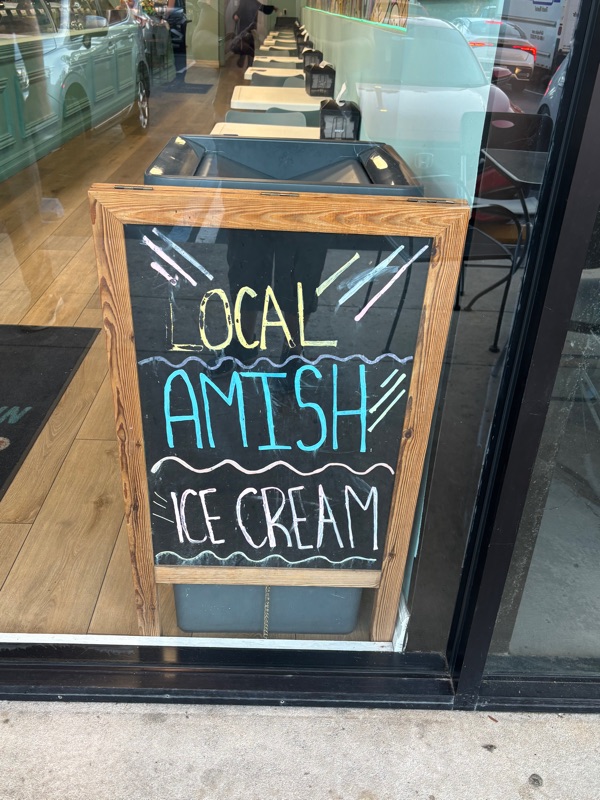 LOCAL
AMISH
ICE CREAM